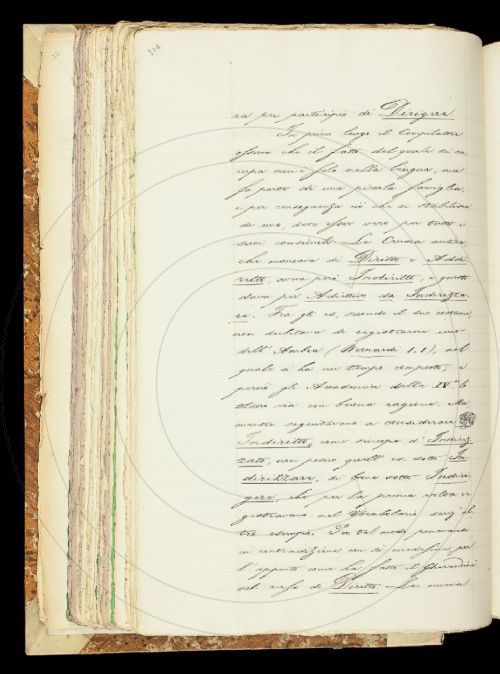 302
ra per participio di Dirigere.
In primo luogo il Compilatore
osserva che il fatto del quale si oc-
cupa non è solo nella lingua, ma
fa parte di una piccola famiglia,
e per conseguenza ciò che si stabilisce
da uno, deve esser vero per tutti i
suoi consimili. La Crusca antica
che mancava di Diritto e Addi-
ritto, aveva però Indiritto, e questo
dava per Adiettivo da Indirizza-
re. Fra gli es., secondo il suo costume,
non dubitava di registrarne uno
dell' Ambra (Bernardi 1, 1), nel
quale si ha un tempo composto; e
perciò gli Accademici della IV.ª lo
tolsero via con buona ragione. Ma
mentre seguitavano a considerare
Indiritto, come sincope d' Indiriz-
zato, non posero quell' es. sotto In-
dirizzare, sì bene sotto Indiri-
gere, che per la prima volta re-
gistravano nel Vocabolario senz' al-
tro esempio. Per tal modo
in contradizione con sè medesimi, per
l' appunto come ha fatto il Gherardini
nel caso di Diritto. La nuova